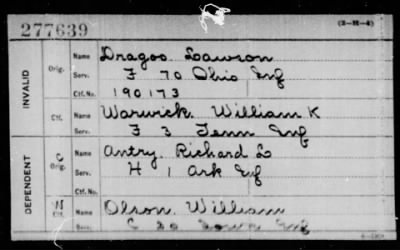 277639
(3-H-4)
INVALID
Orig.
Name Dragoo. Lawson
Serv. F 70 Ohio Inf
Ctf. No. 190173
Ctf.
Name Warwick. William K
Serv. F 3 Tenn Inf
DEPENDENT
C
Orig.
Name Antry. Richard L
Serv. H 1 Ark Inf
Ctf. No.
W
Ctf.
Name Olson. William
Serv. C Iowa Inf